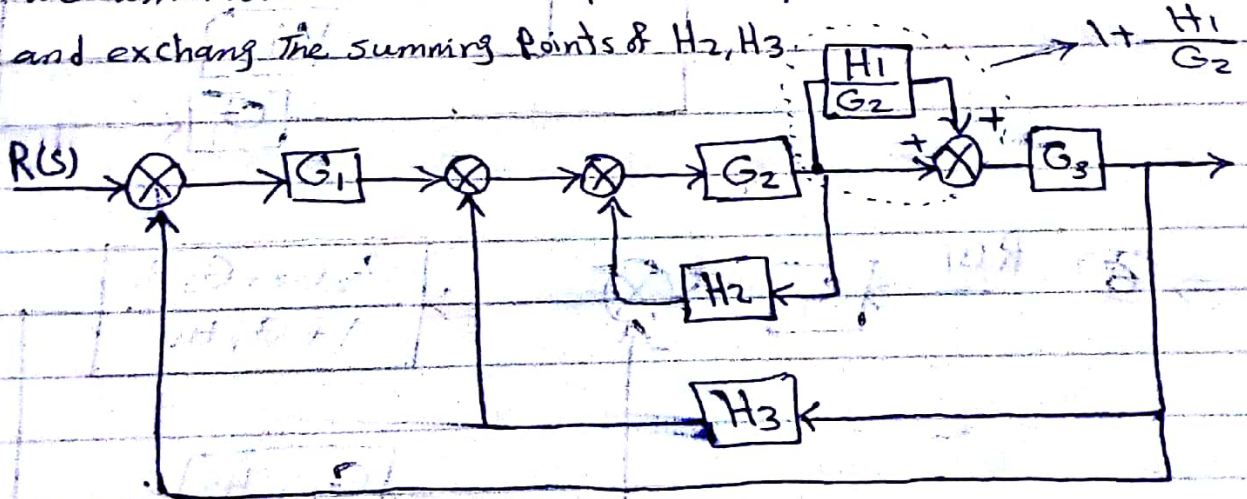 and exchang The summing Points of H2, H3
1 + H1/G2
H1/G2
R(S)
G1
G2
+
+
G3
H2
H3